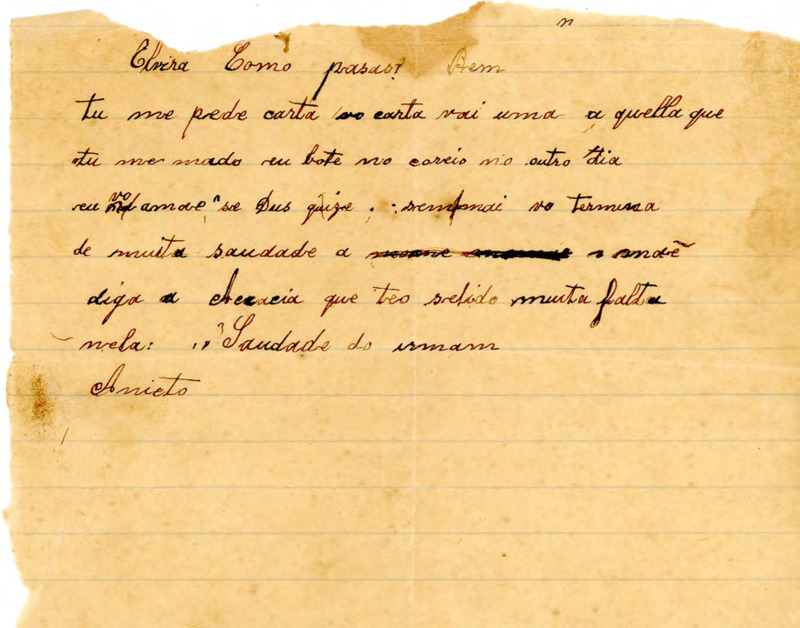 Elvira Como pasas? Bem
tu me pede carta vo carta vai uma a quella que
tu me mado eu bote no coreio no outro dia
eu vo amãe se Dus quize . : sem mai vo termina
de muita saudade a mãe
diga a Acacia que teo setido muita falta
nela: Saudade do irmam
Anieto